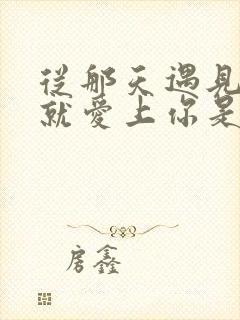 從那天遇見
就愛上你是
房鑫